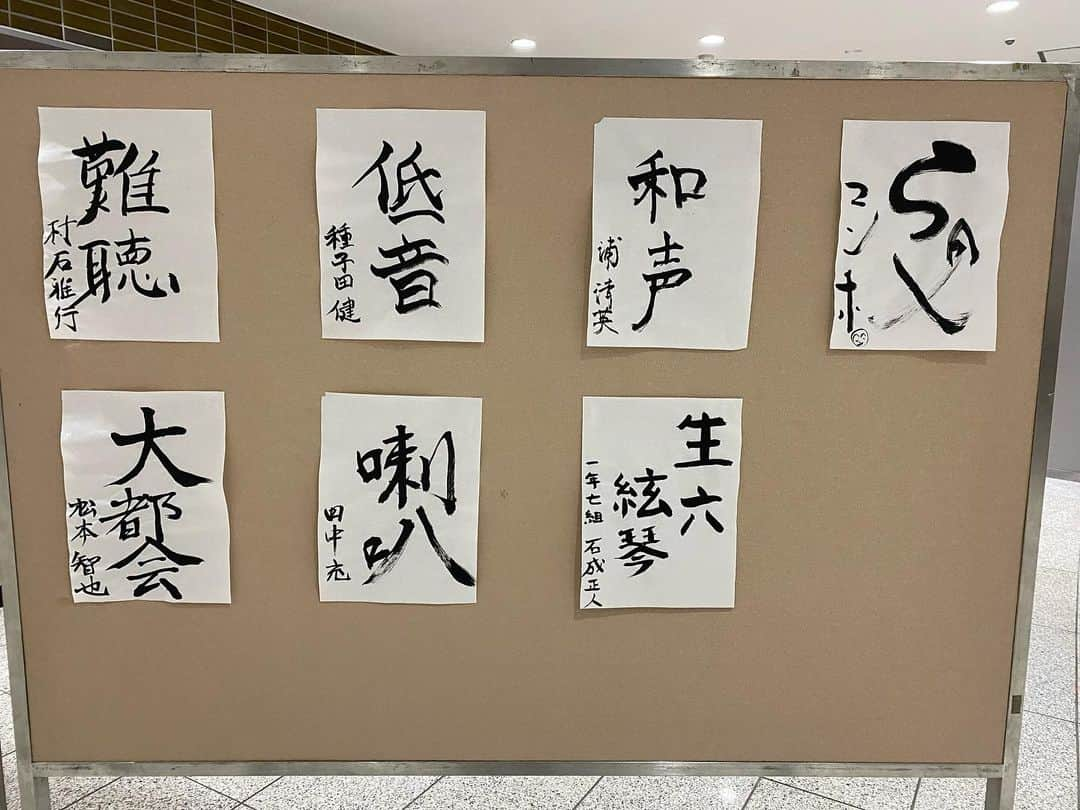 難聴
村石雅行
低音
種子田健
和声
浦清英
大都会
松本智也
喇叭
田中充
生六
絃琴
一年七組 石成正人